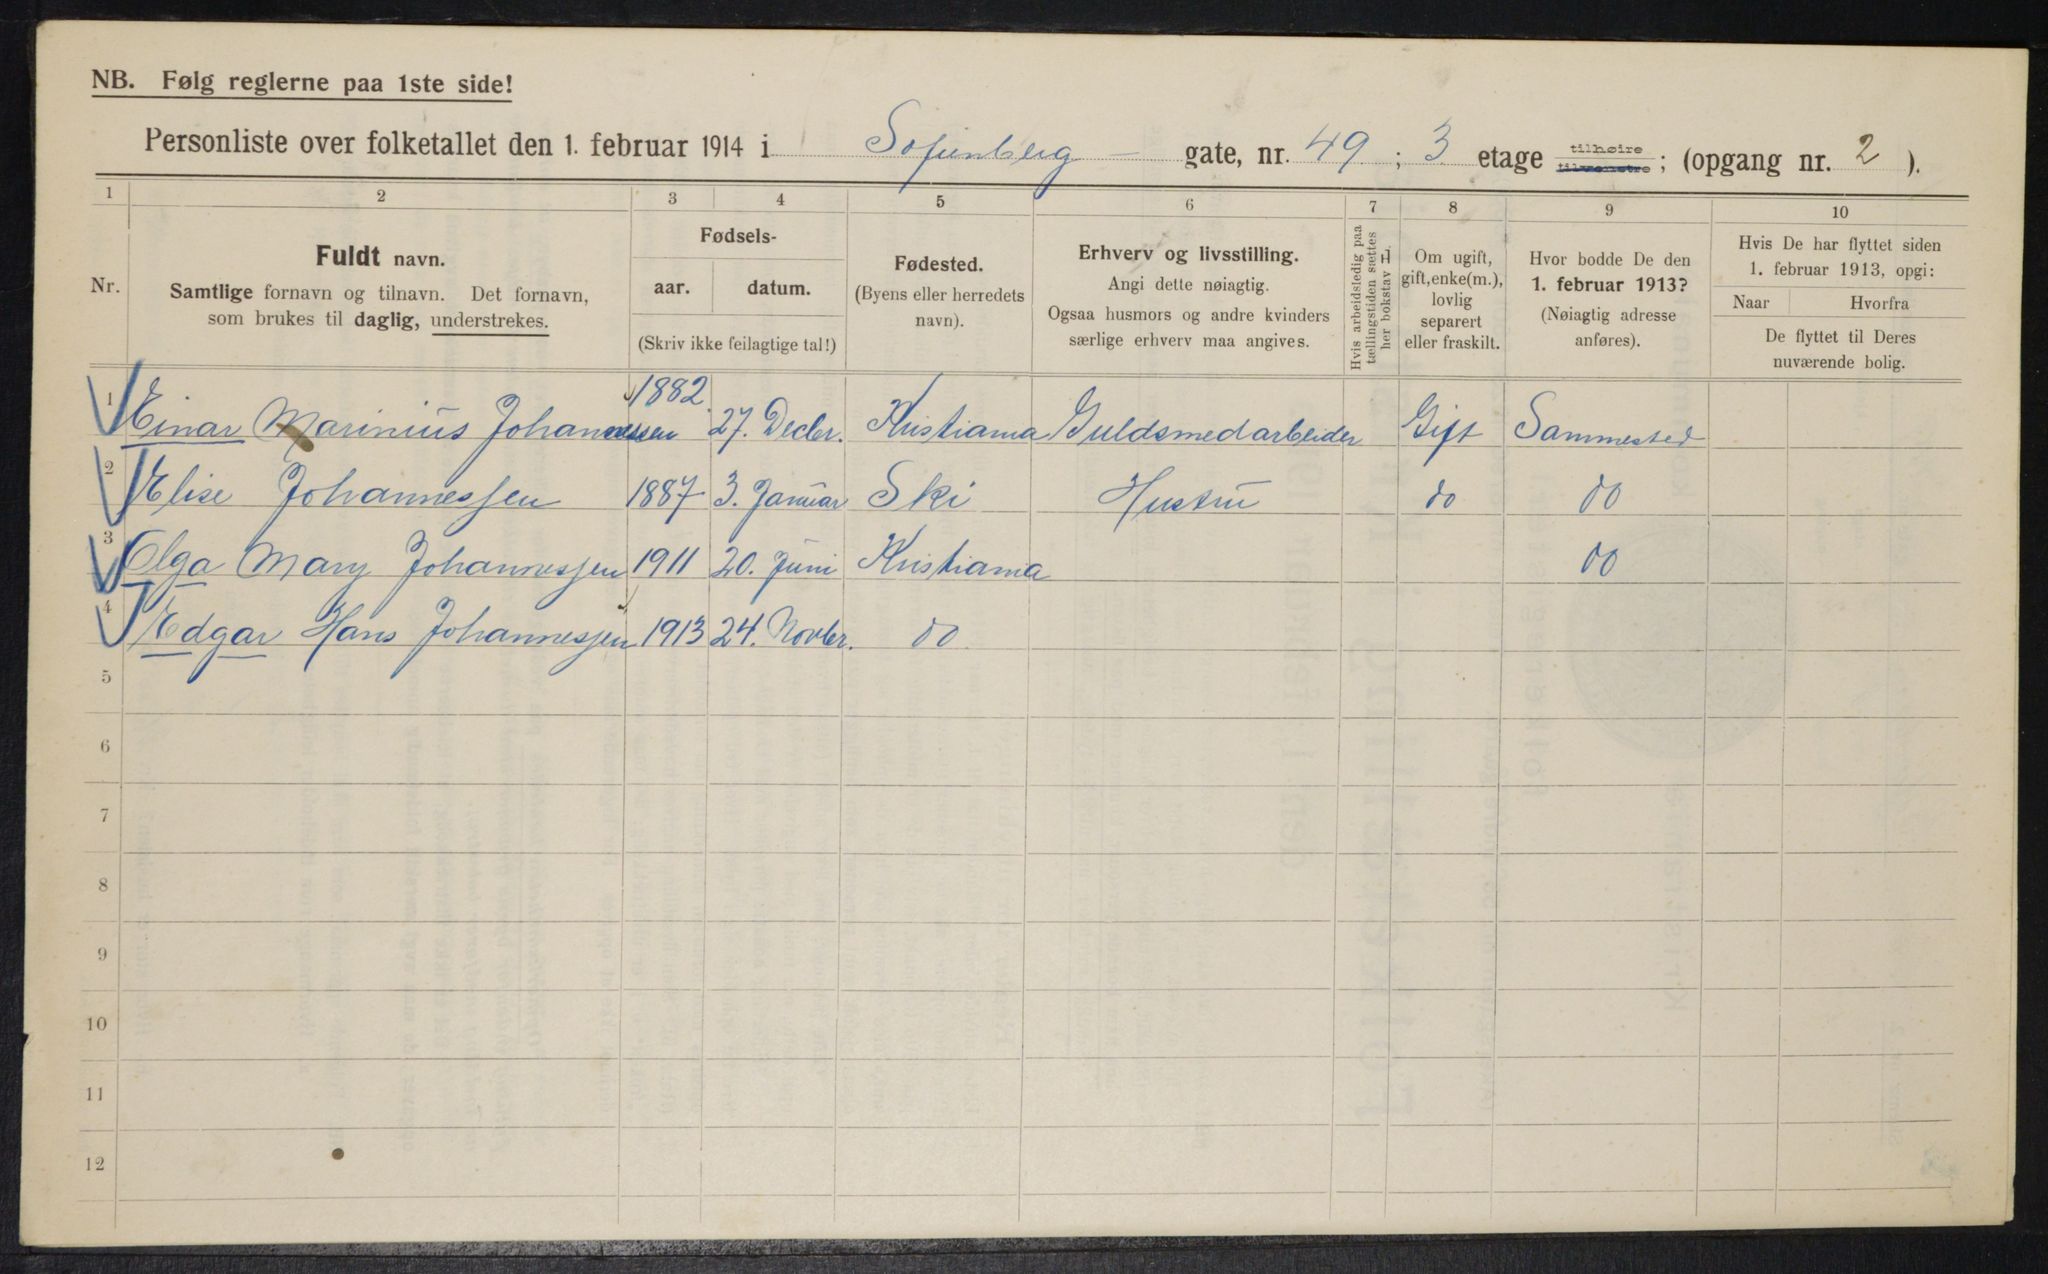 NB. Følg reglerne paa 1ste side!
Personliste over folketallet den 1. februar 1914 i Sofienberg - gate, nr. 49 ; 3 etage tilhøire tilvenstre ; (opgang nr. 2 ).
1 2 3 4 5 6 7 8 9 10
Nr.
Fuldt navn.
Samtlige fornavn og tilnavn. Det fornavn,
som brukes til daglig, understrekes.
Fødsels-
aar. datum.
(Skriv ikke feilagtige tal!)
Fødested.
(Byens eller herredets
navn).
Erhverv og livsstilling.
Angi dette nøiagtig.
Ogsaa husmors og andre kvinders
særlige erhverv maa angives.
Hvis arbeidsledig paa
tællingstiden sættes
her bokstav L.
Om ugift,
gift, enke(m.),
lovlig
separert
eller fraskilt.
Hvor bodde De den
1. februar 1913?
(Nøiagtig adresse
anføres).
Hvis De har flyttet siden
1. februar 1913, opgi:
Naar Hvorfra
De flyttet til Deres
nuværende bolig.
1 Einar Marinius Johannessen 1882. 27. Decbr. Kristiania Guldsmedarbeider Gift Sammested
2 Elise Johannessen 1887 3. Januar Ski Hustru do do
3 Olga Mary Johannessen 1911 20. Juni Kristiania do
4 Edgar Hans Johannessen 1913 24. Novbr. do
5
6
7
8
9
10
11
12